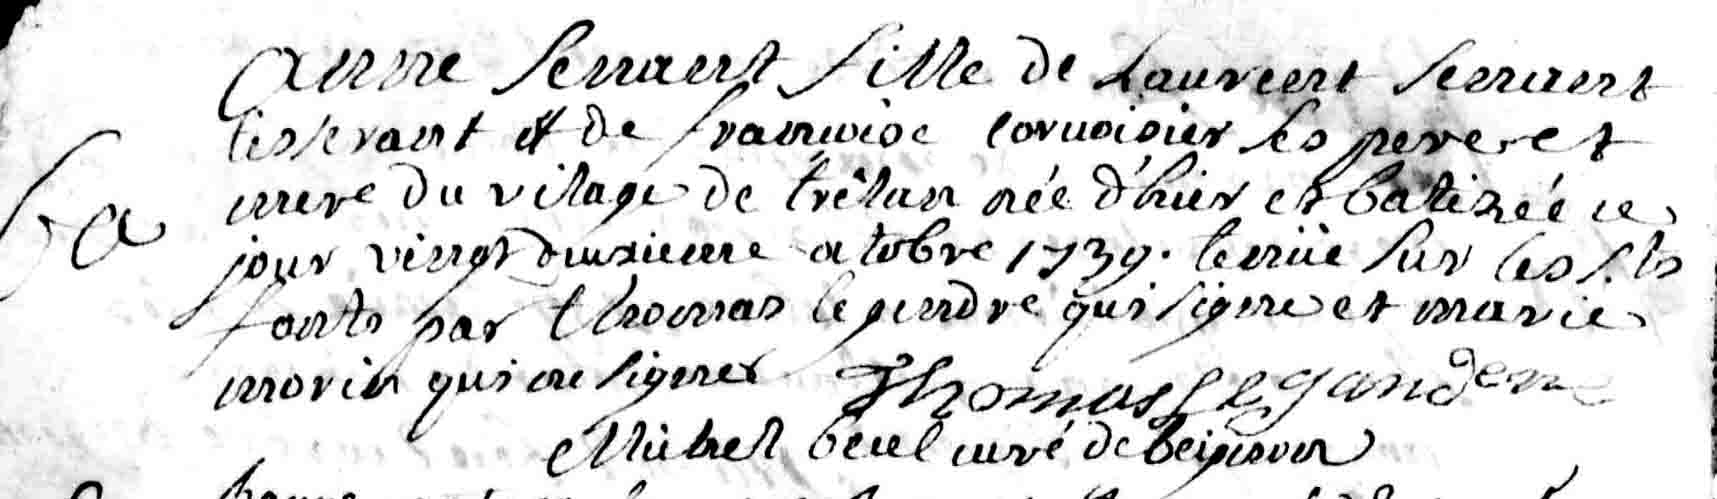 Anne Serrant fille de Laurent Serrant
tisserant et de francoise corvoisier ses pere et
mere du vilage de trélan née d'hier et batizée ce
jour vingt deuxieme octobre 1739. tenüe sur les Sts
fonts par thomas le gendre qui signe et marie
morin qui ne signe
Thomas Le gandre
Michel beul curé de beignon